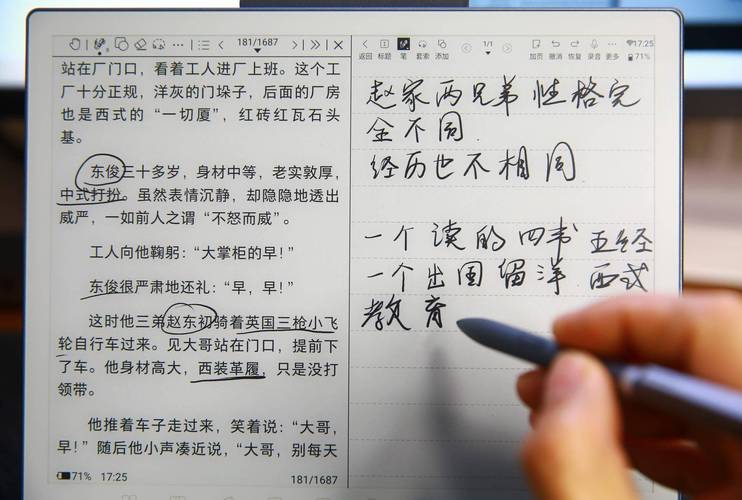 181/1687
站在厂门口，看着工人进厂上班。这个工
厂十分正规，洋灰的门垛子，后面的厂房
也是西式的“一切厦”，红砖红瓦石头
基。
东俊三十多岁，身材中等，老实敦厚，
中式打扮。虽然表情沉静，却隐隐地透出
威严，一如前人之谓“不怒而威”。
工人向他鞠躬：“大掌柜的早！”
东俊很严肃地还礼：“早，早！”
这时他三弟赵东初骑着英国三枪小飞
轮自行车过来。见大哥站在门口，提前下
了车。他身材高大，西装革履，只是没打
领带。
他推着车子走过来，笑着说：“大哥，
早！”随后他小声凑近说，“大哥，别每天
71% 17:25
181/1687
1/1
17:25
返回 标题 笔 套索 添加
加页 撤消 恢复 录音 更多 71%
赵家两兄弟性格完
全不同
经历也不相同
一个读的四书五经
一个出国留洋 西式
教育